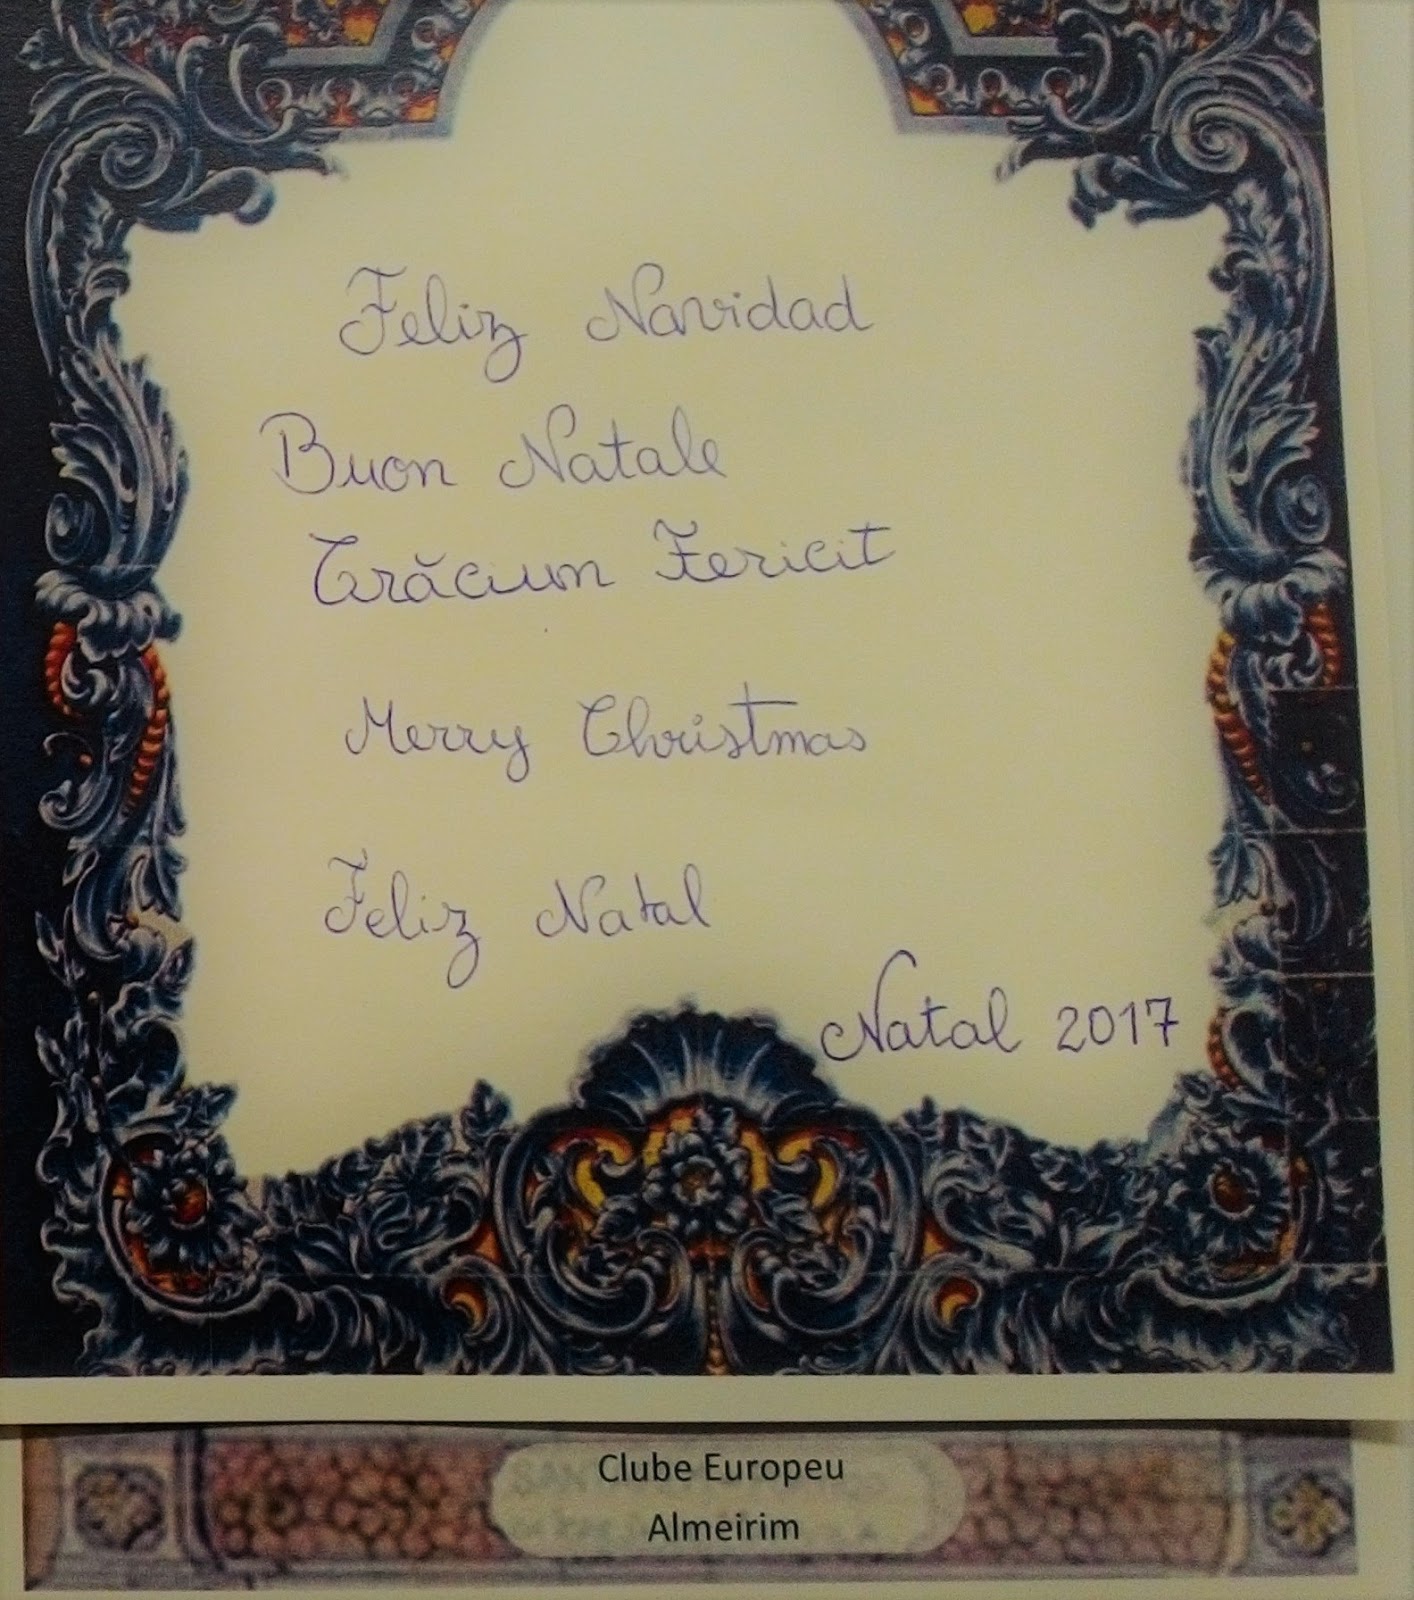 Feliz Navidad
Buon Natale
Crăciun Fericit
Merry Christmas
Feliz Natal
Natal 2017
Clube Europeu
Almeirim